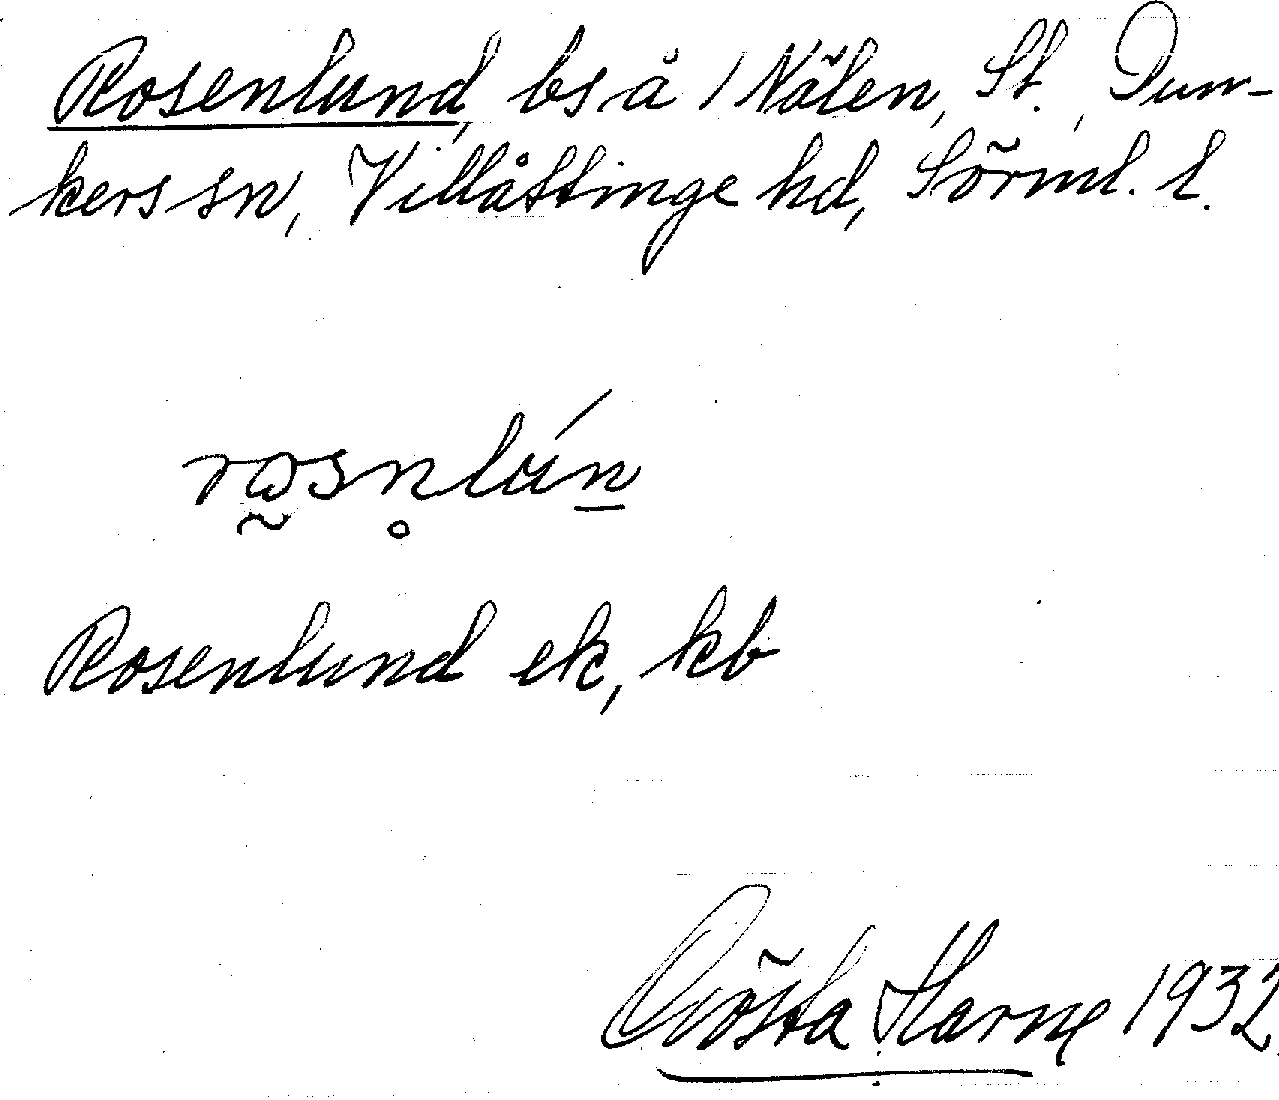 Rosenlund, bs å 1 Nälen, St., Dun-
kers sn, Villåttinge hd, Sörml. l.
rosn̥lún
Rosenlund ek, kb
Gösta Harne 1932